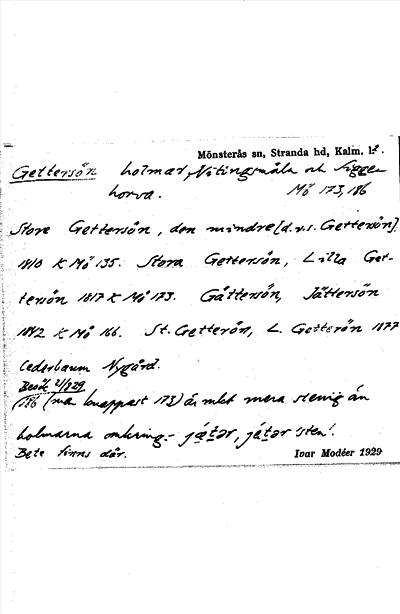 Mönsterås sn, Stranda hd, Kalm. l.
Gettersön holmar, Nötingsmåla och Sigge-
horva. Mö 173, 186
Stora Gettersön, den mindre [d.v.s. Gettersön]
1810 K Mö 135. Stora Gettersön, Lilla Get-
tersön 1817 K Mö 173. Gåttersön, Jättersön
1842 K Mö 166. St. Getterön, L. Getterön 1877
Cederbaum Nygård.
Besök 29
186 (men knappast 173) är mkt mera stenig än
holmarna omkring.- sten'.
Bete finns där. Ivar Modéer 1929